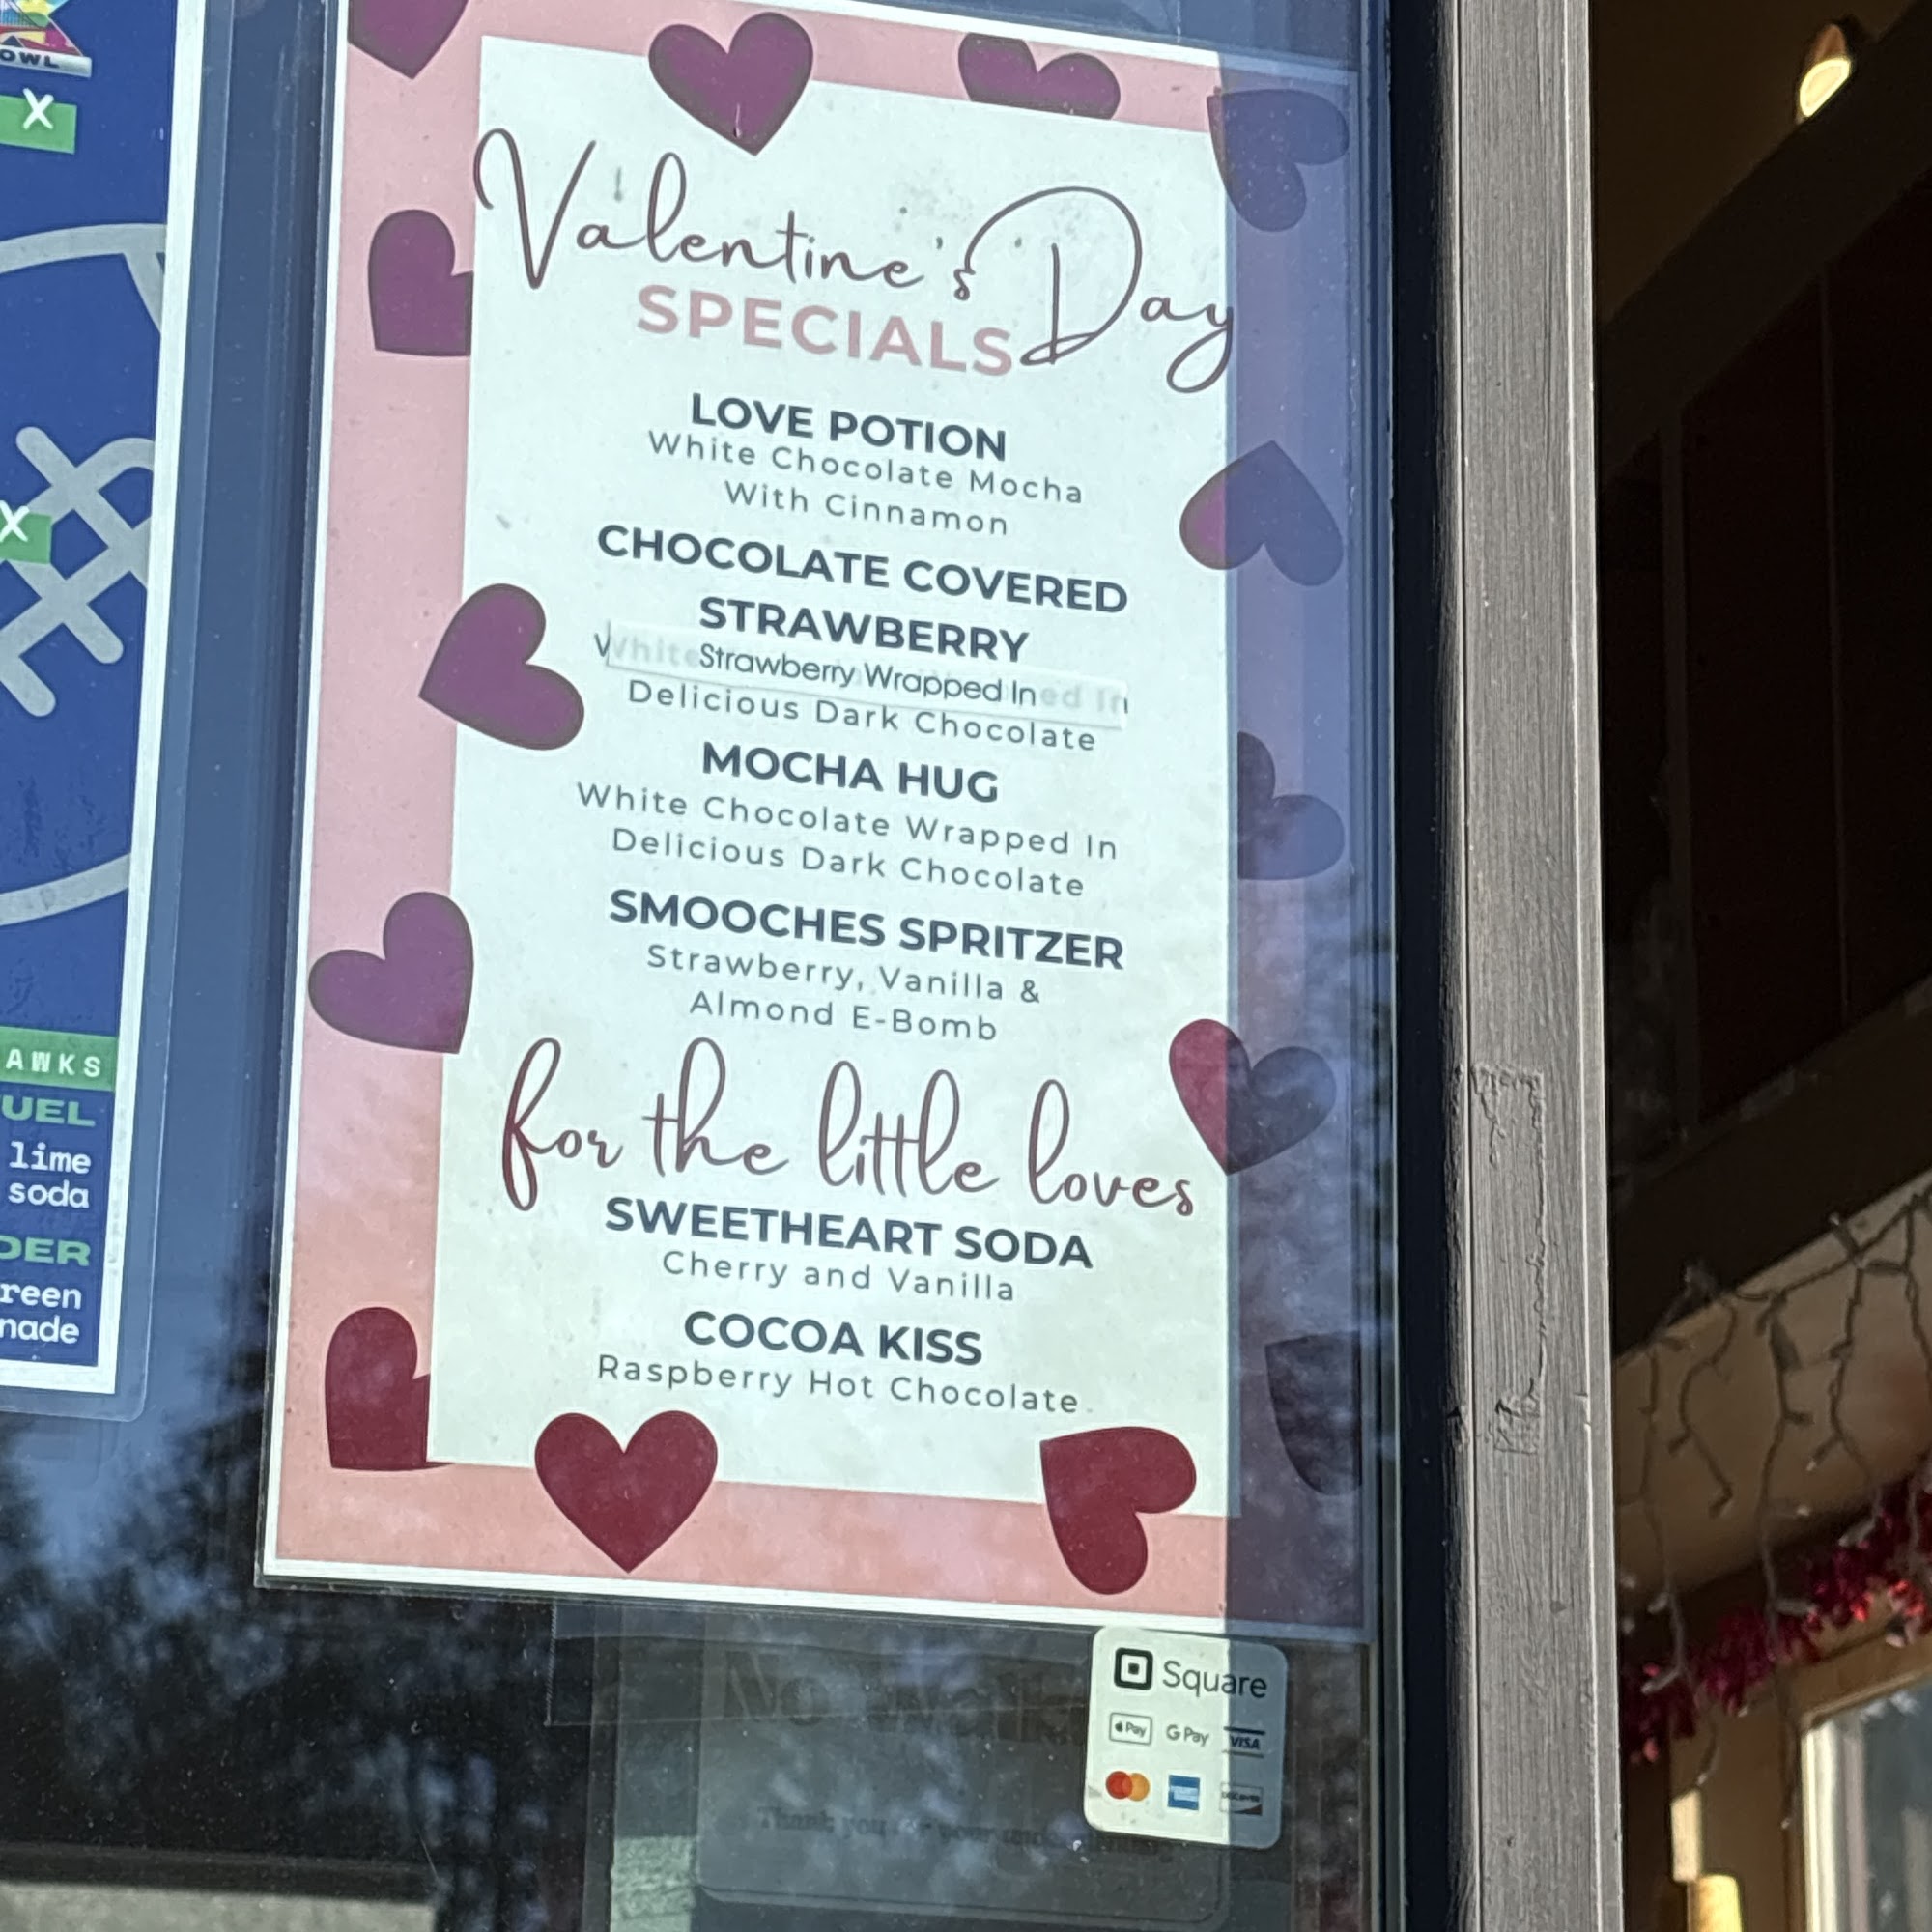 OWL
X
X
AWKS
UEL
lime
soda
DER
reen
nade
Valentine's Day
SPECIALS
LOVE POTION
White Chocolate Mocha
With Cinnamon
CHOCOLATE COVERED
STRAWBERRY
Strawberry Wrapped In
Delicious Dark Chocolate
MOCHA HUG
White Chocolate Wrapped In
Delicious Dark Chocolate
SMOOCHES SPRITZER
Strawberry, Vanilla &
Almond E-Bomb
for the little loves
SWEETHEART SODA
Cherry and Vanilla
COCOA KISS
Raspberry Hot Chocolate
Square
Pay G Pay VISA
DISCOVER